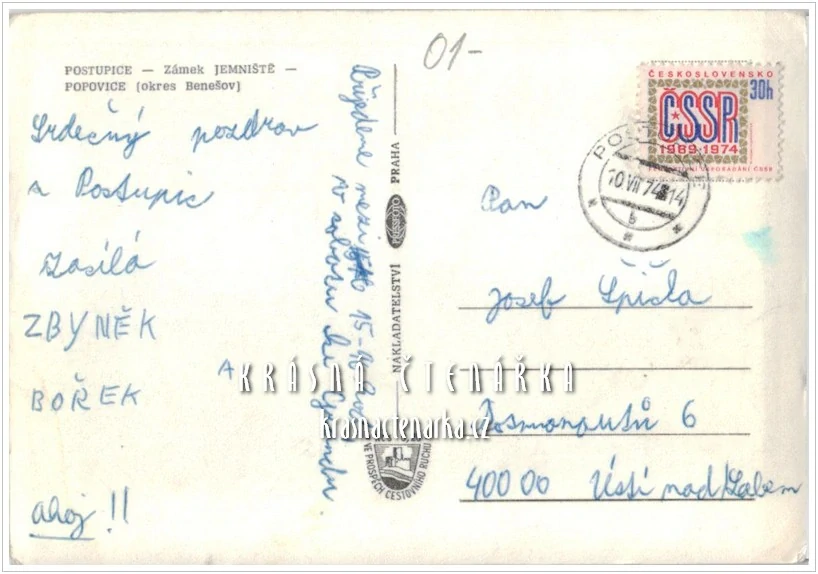 POSTUPICE — Zámek JEMNIŠTĚ —
POPOVICE (okres Benešov)
01-
Srdečný pozdrav
z Postupic
zasílá
ZBYNĚK
A
BOŘEK
ahoj !!
Přijedeme mezi 15-16 hod
v sobotu
NAKLADATELSTVÍ PRESSFOTO PRAHA
VE PROSPĚCH CESTOVNÍHO RUCHU
ČESKOSLOVENSKO
30h
ČSSR
1969-1974
10.VII.74-14
b
Pan
Josef Špičla
Kosmonautů 6
400 00 Ústí nad/Labem
KRÁSNÁ ČTENÁŘKA
krasnactenarka.cz